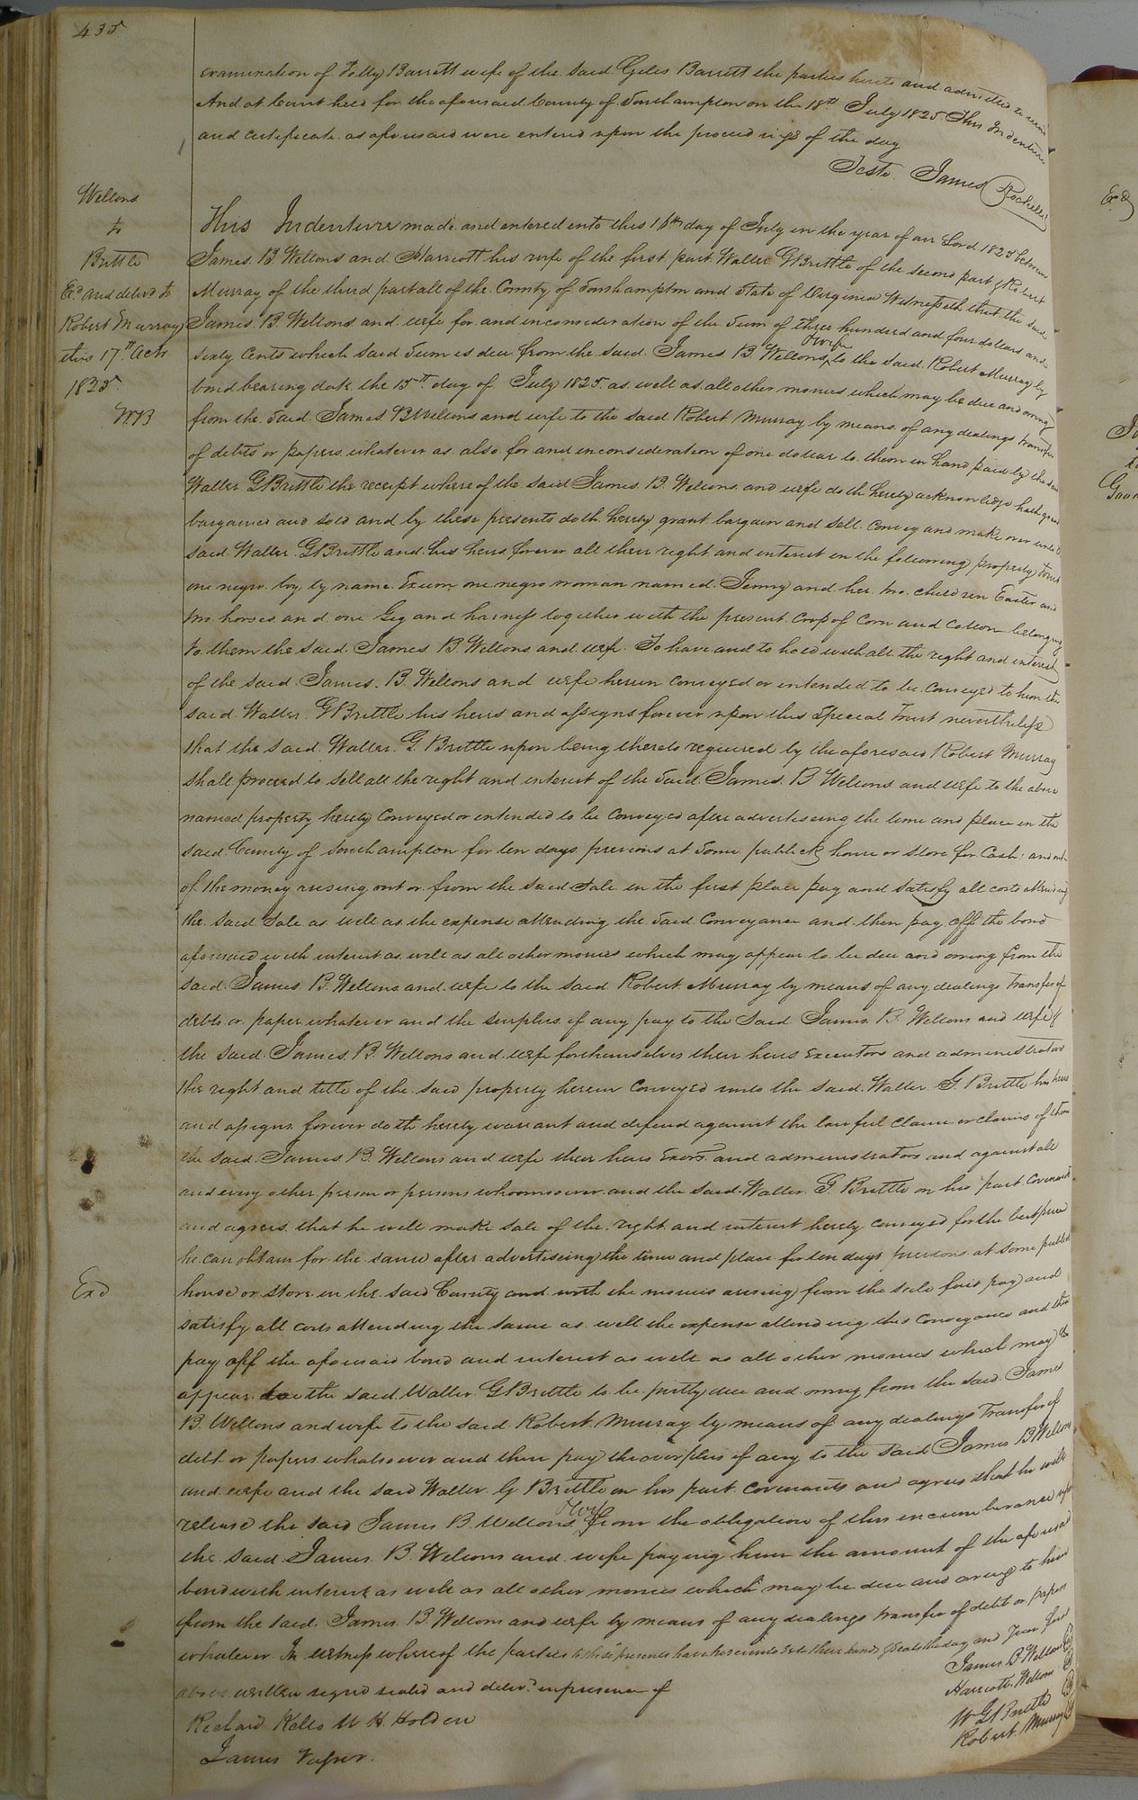 435
examination of Polly Barrett wife of the said Giles Barrett the parties hereto and admitted to record
And at Court held for the aforesaid County of Southampton on the 18th July 1825 This Indenture
and certificate as aforesaid were entered upon the proceedings of the day
Teste James Rochelle
Wellons
to
Brittle
Ex.d and deliv.d to
Robert Murray
this 17th
1825
This Indenture made and entered into this 16th day of July in the year of our Lord 1825 between
James B Wellons and Harriott his wife of the first part Walter G Brittle of the second part & Robert
Murray of the third part all of the County of Southampton and State of Virginia Witnesseth that the said
James B Wellons and wife for and in consideration of the Sum of three hundred and four dollars and
sixty Cents which said Sum is due from the said James B Wellons & wife to the said Robert Murray by
bond bearing date the 15th day of July 1825 as well as all other monies which may be due and owing
from the said James B Wellons and wife to the said Robert Murray by means of any dealings transfer
of debts or papers whatever as also for and in consideration of one dollar to them in hand paid by the said
Walter G Brittle the receipt whereof the said James B Wellons and wife doth hereby acknowledge hath
bargained and sold and by these presents doth hereby grant bargain and sell convey and make over unto
said Walter G Brittle and his heirs forever all their right and interest in the following property
one negro boy by name Exum one negro woman named Jenny and her two children Easter and
two horses and one Gig and harness together with the present Crop of Corn and Cotton belonging
to them the said James B Wellons and wife To have and to hold with all the right and interest
of the said James B Wellons and wife herein conveyed or intended to be conveyed to him the
said Walter G Brittle his heirs and assigns forever upon this Special Trust nevertheless
that the said Walter G Brittle upon being thereto required by the aforesaid Robert Murray
shall proceed to sell all the right and interest of the said James B Wellons and wife to the above
named property hereby conveyed or intended to be conveyed after advertising the time and place in the
said County of Southampton for ten days previous at some publick house or store for Cash and out
of the money arising out or from the said sale in the first place pay and satisfy all costs attending
the said sale as well as the expense attending the said Conveyance and then pay off the bond
aforesaid with interest as well as all other monies which may appear to be due and owing from the
said James B Wellons and wife to the said Robert Murray by means of any dealings transfer of
debts or paper whatever and the surplus if any pay to the said James B Wellons and wife &
the said James B Wellons and wife for themselves their heirs Executors and administrators
the right and title of the said property herein conveyed unto the said Walter G Brittle his heirs
and assigns forever doth hereby warrant and defend against the lawful claim or claims of them
the said James B Wellons and wife their heirs Exors and administrators and against all
and every other person or persons whomsoever and the said Walter G Brittle on his part Covenants
and agrees that he will make sale of the right and interest hereby conveyed for the best price
he can obtain for the same after advertising the time and place for ten days previous at some public
Exd
house or store in the said County and with the monies arising from the sale first pay and
satisfy all costs attending the same as well the expense attending this Conveyance and then
pay off the aforesaid bond and interest as well as all other monies which may
appear to the said Walter G Brittle to be justly due and owing from the said James
B Wellons and wife to the said Robert Murray by means of any dealings transfer of
debt or papers whatsoever and then pay the overplus if any to the said James B Wellons
and wife and the said Walter G Brittle on his part covenants and agrees that he will
release the said James B Wellons & wife from the obligation of this incumbrance upon
the said James B Wellons and wife paying him the amount of the aforesaid
bond with interest as well as all other monies which may be due and owing to him
from the said James B Wellons and wife by means of any dealings transfer of debt or papers
whatever In witness whereof the parties to these presents have hereunto set their hands & seals the day and year first
above written signed sealed and deliv.d in presence of
James B Wellons
Harriott Wellons
W G Brittle
Robert Murray
Richard Kello W H Holden
James